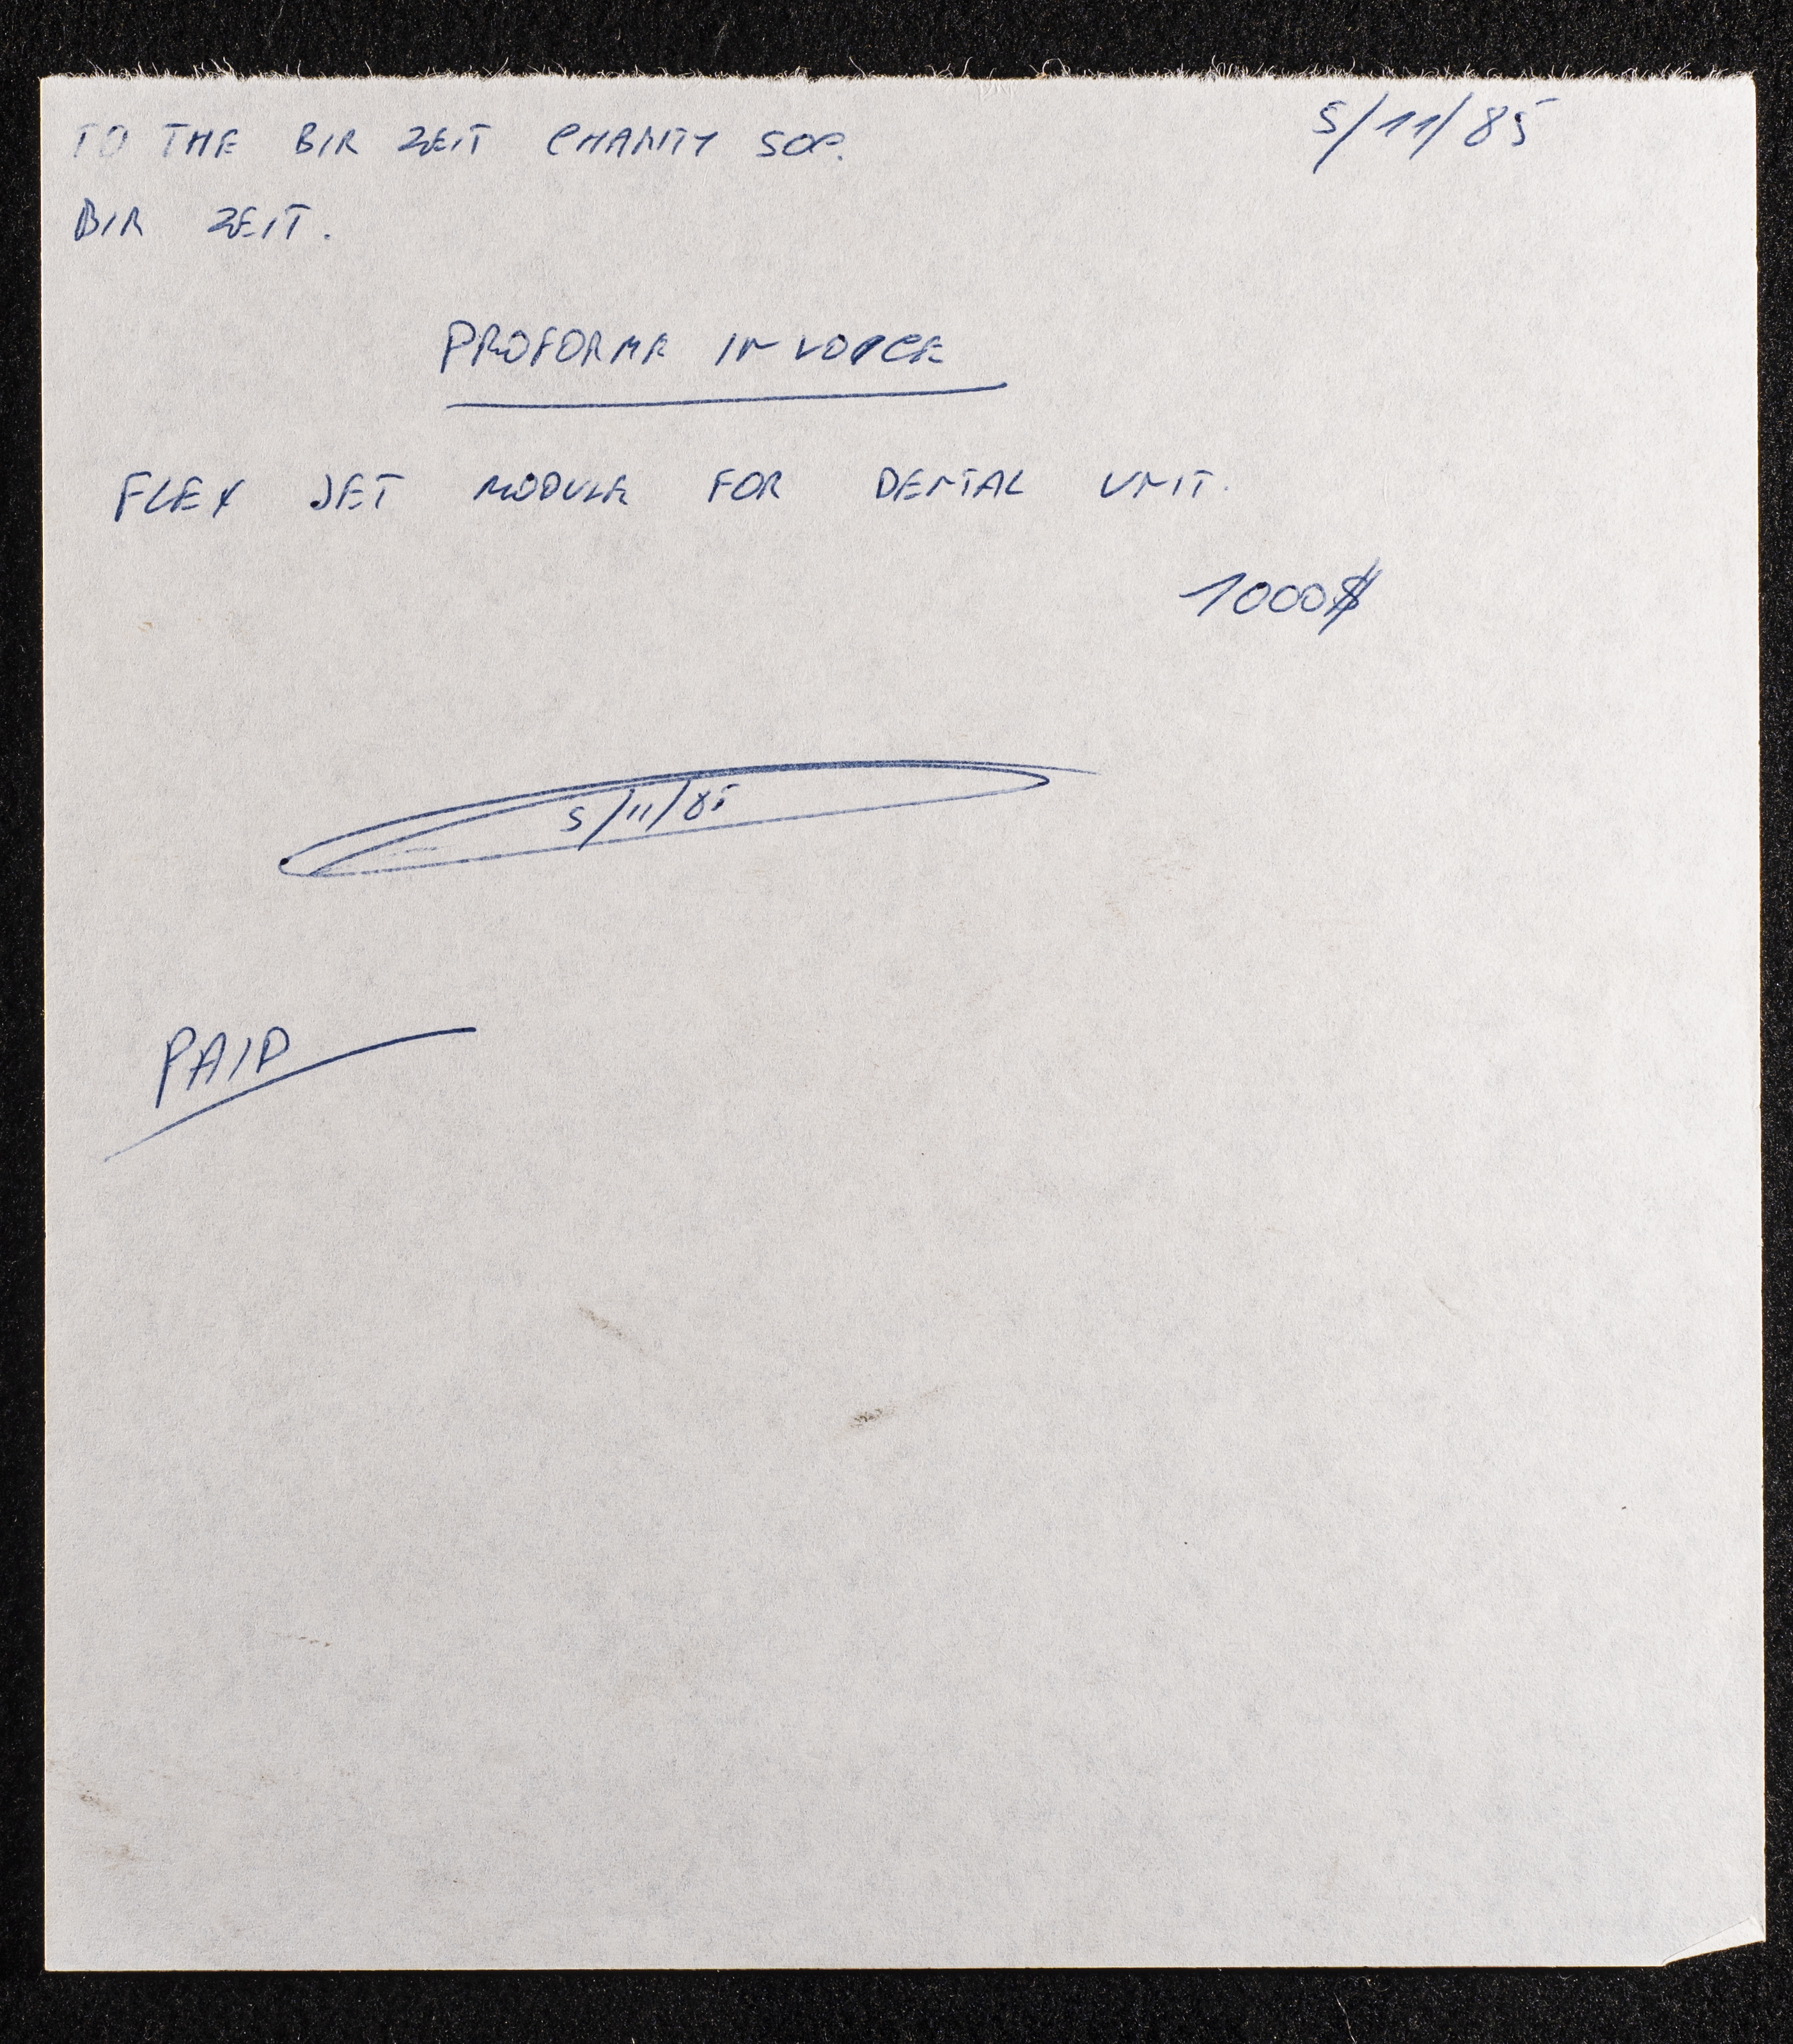 TO THE BIR ZEIT CHARITY SOC. 5/11/85
BIR ZEIT.
PROFORMA INVOICE
FLEX JET MODULE FOR DENTAL UNIT.
1000$
5/11/85
PAID